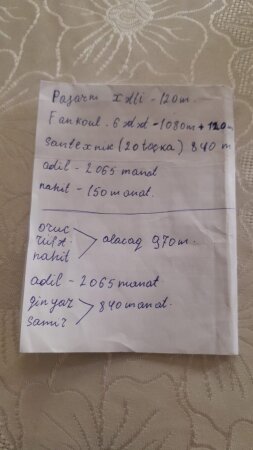 Pajarnı xətti - 120 m.
Fankoul - 6 ədəd - 1080m + 120m
Santexnik (20 toçka) 840 m
adil - 2065 manat
nahit - 150 manat.
oruc
rüst.
nahit
alacaq 970 m.
adil - 2065 manat
ginyaz
samir
840 manat.